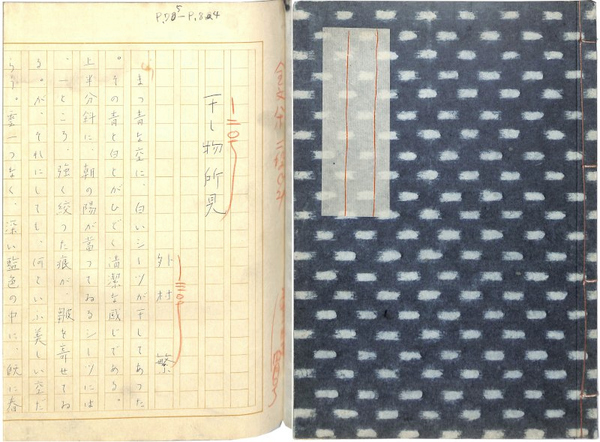 干し物所見
外村 繁
まつ青な空に、白いシーツが干してあつた
。その青と白とがひどく清潔な感じである。
上半分斜に、朝の陽が當つてゐるシーツには
、一ところ、強く絞つた痕が、皺を寄せてゐ
る。が、それにしても、何といふ美しい空だ
らう。雲一つなく、深い藍色の中に、既に春